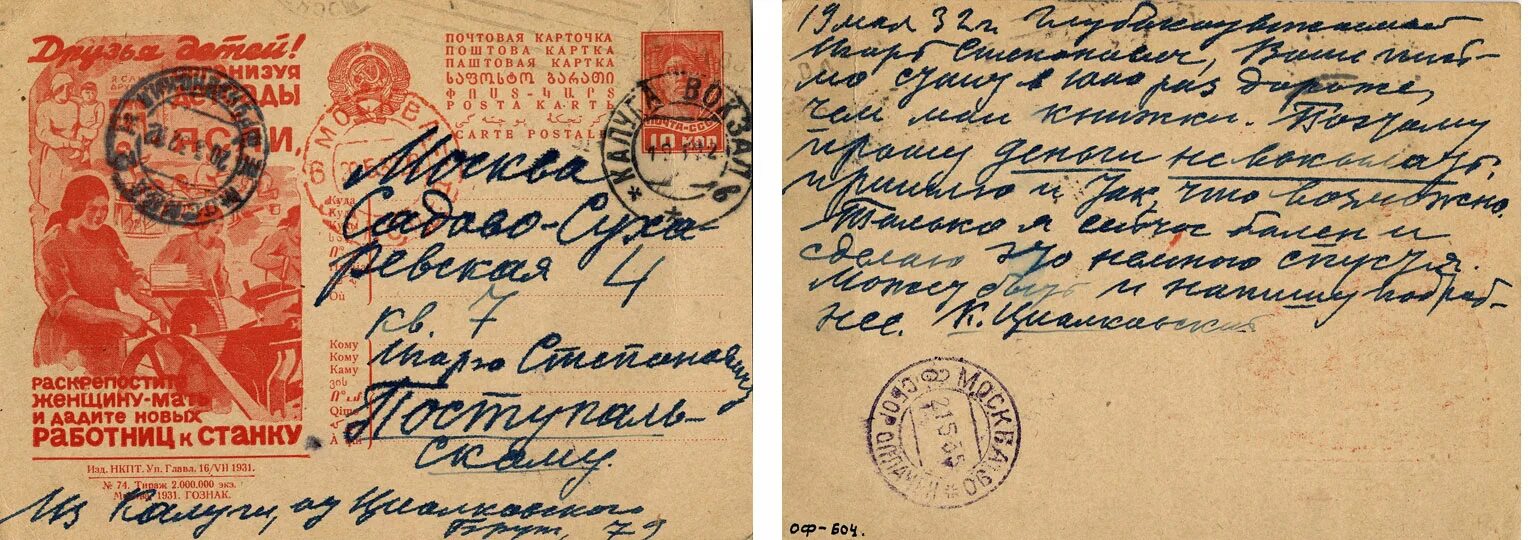 Друзья детей!
организуя
детсады
ЯСЛИ,
РАСКРЕПОСТИТЕ
ЖЕНЩИНУ-МАТЬ
и дадите новых
РАБОТНИЦ К СТАНКУ
Изд. НКПТ. Уп. Главл. 16/VII 1931.
№ 74. Тираж 2.000.000 экз.
Москва 1931. ГОЗНАК.
ПОЧТОВАЯ КАРТОЧКА
ПОШТОВА КАРТКА
ПАШТОВАЯ КАРТКА
ᲡᲐᲤᲝᲡᲢᲝ ᲑᲐᲠᲐᲗᲘ
ՓՈՍՏ-ՔԱՐՏ
POSTA KARTЬ
CARTE POSTALE
ПОЧТА-СССР
10 КОП
КАЛУГА ВОКЗАЛ
Москва
Садово-Суха-
ревская 4
кв. 7
Марго Степановичу
Поступаль-
скому.
Куда
Куды
Кому
Кому
Каму
Qimə
Из Калуги, от Циалковского
Брут, 79
19 мая 32 г. Глубокоуважаемый
Степанович, Ваше пись-
мо в 1000 раз дороже,
чем мои книжки. Поэтому
прошу деньги не высылать,
пришлю и так, что возможно.
Только я сейчас болен и
сделаю это немного спустя.
Может быть и напишу подроб-
нее. К. Циалковский
МОСКВА
21 5 35
ОФ-604.